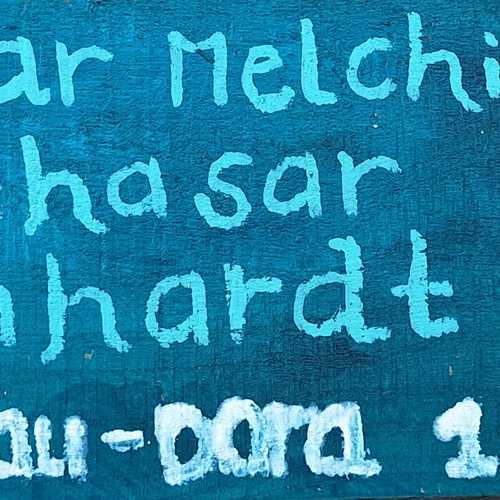 ar Melchi
hasar
hardt
au-para 1